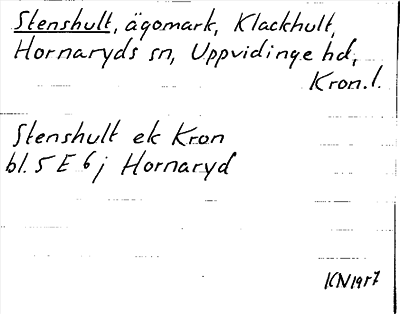 Stenshult, ägomark, Klackhult,
Hornaryds sn, Uppvidinge hd,
Kron. l.
Stenshult ek Kron
bl. 5 E 6 j Hornaryd